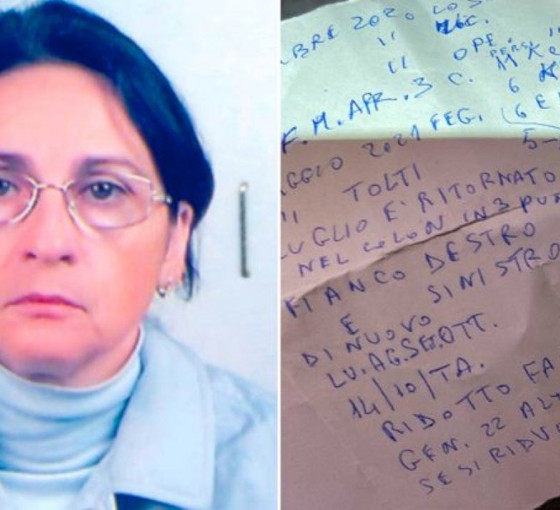 BRE 2020
" 
" OPE
F. M. APR. 3 C. 6
AGGIO 2021 FEG. (6 E
" TOLTI 5-
LUGLIO E' RITORNATO
NEL COLON IN 3 PU
FIANCO DESTRO
E SINISTRO
DI NUOVO
LU. AG. SET. OTT.
14/10/TA.
RIDOTTO FA
GEN. 22 AL
SE SI RIDU